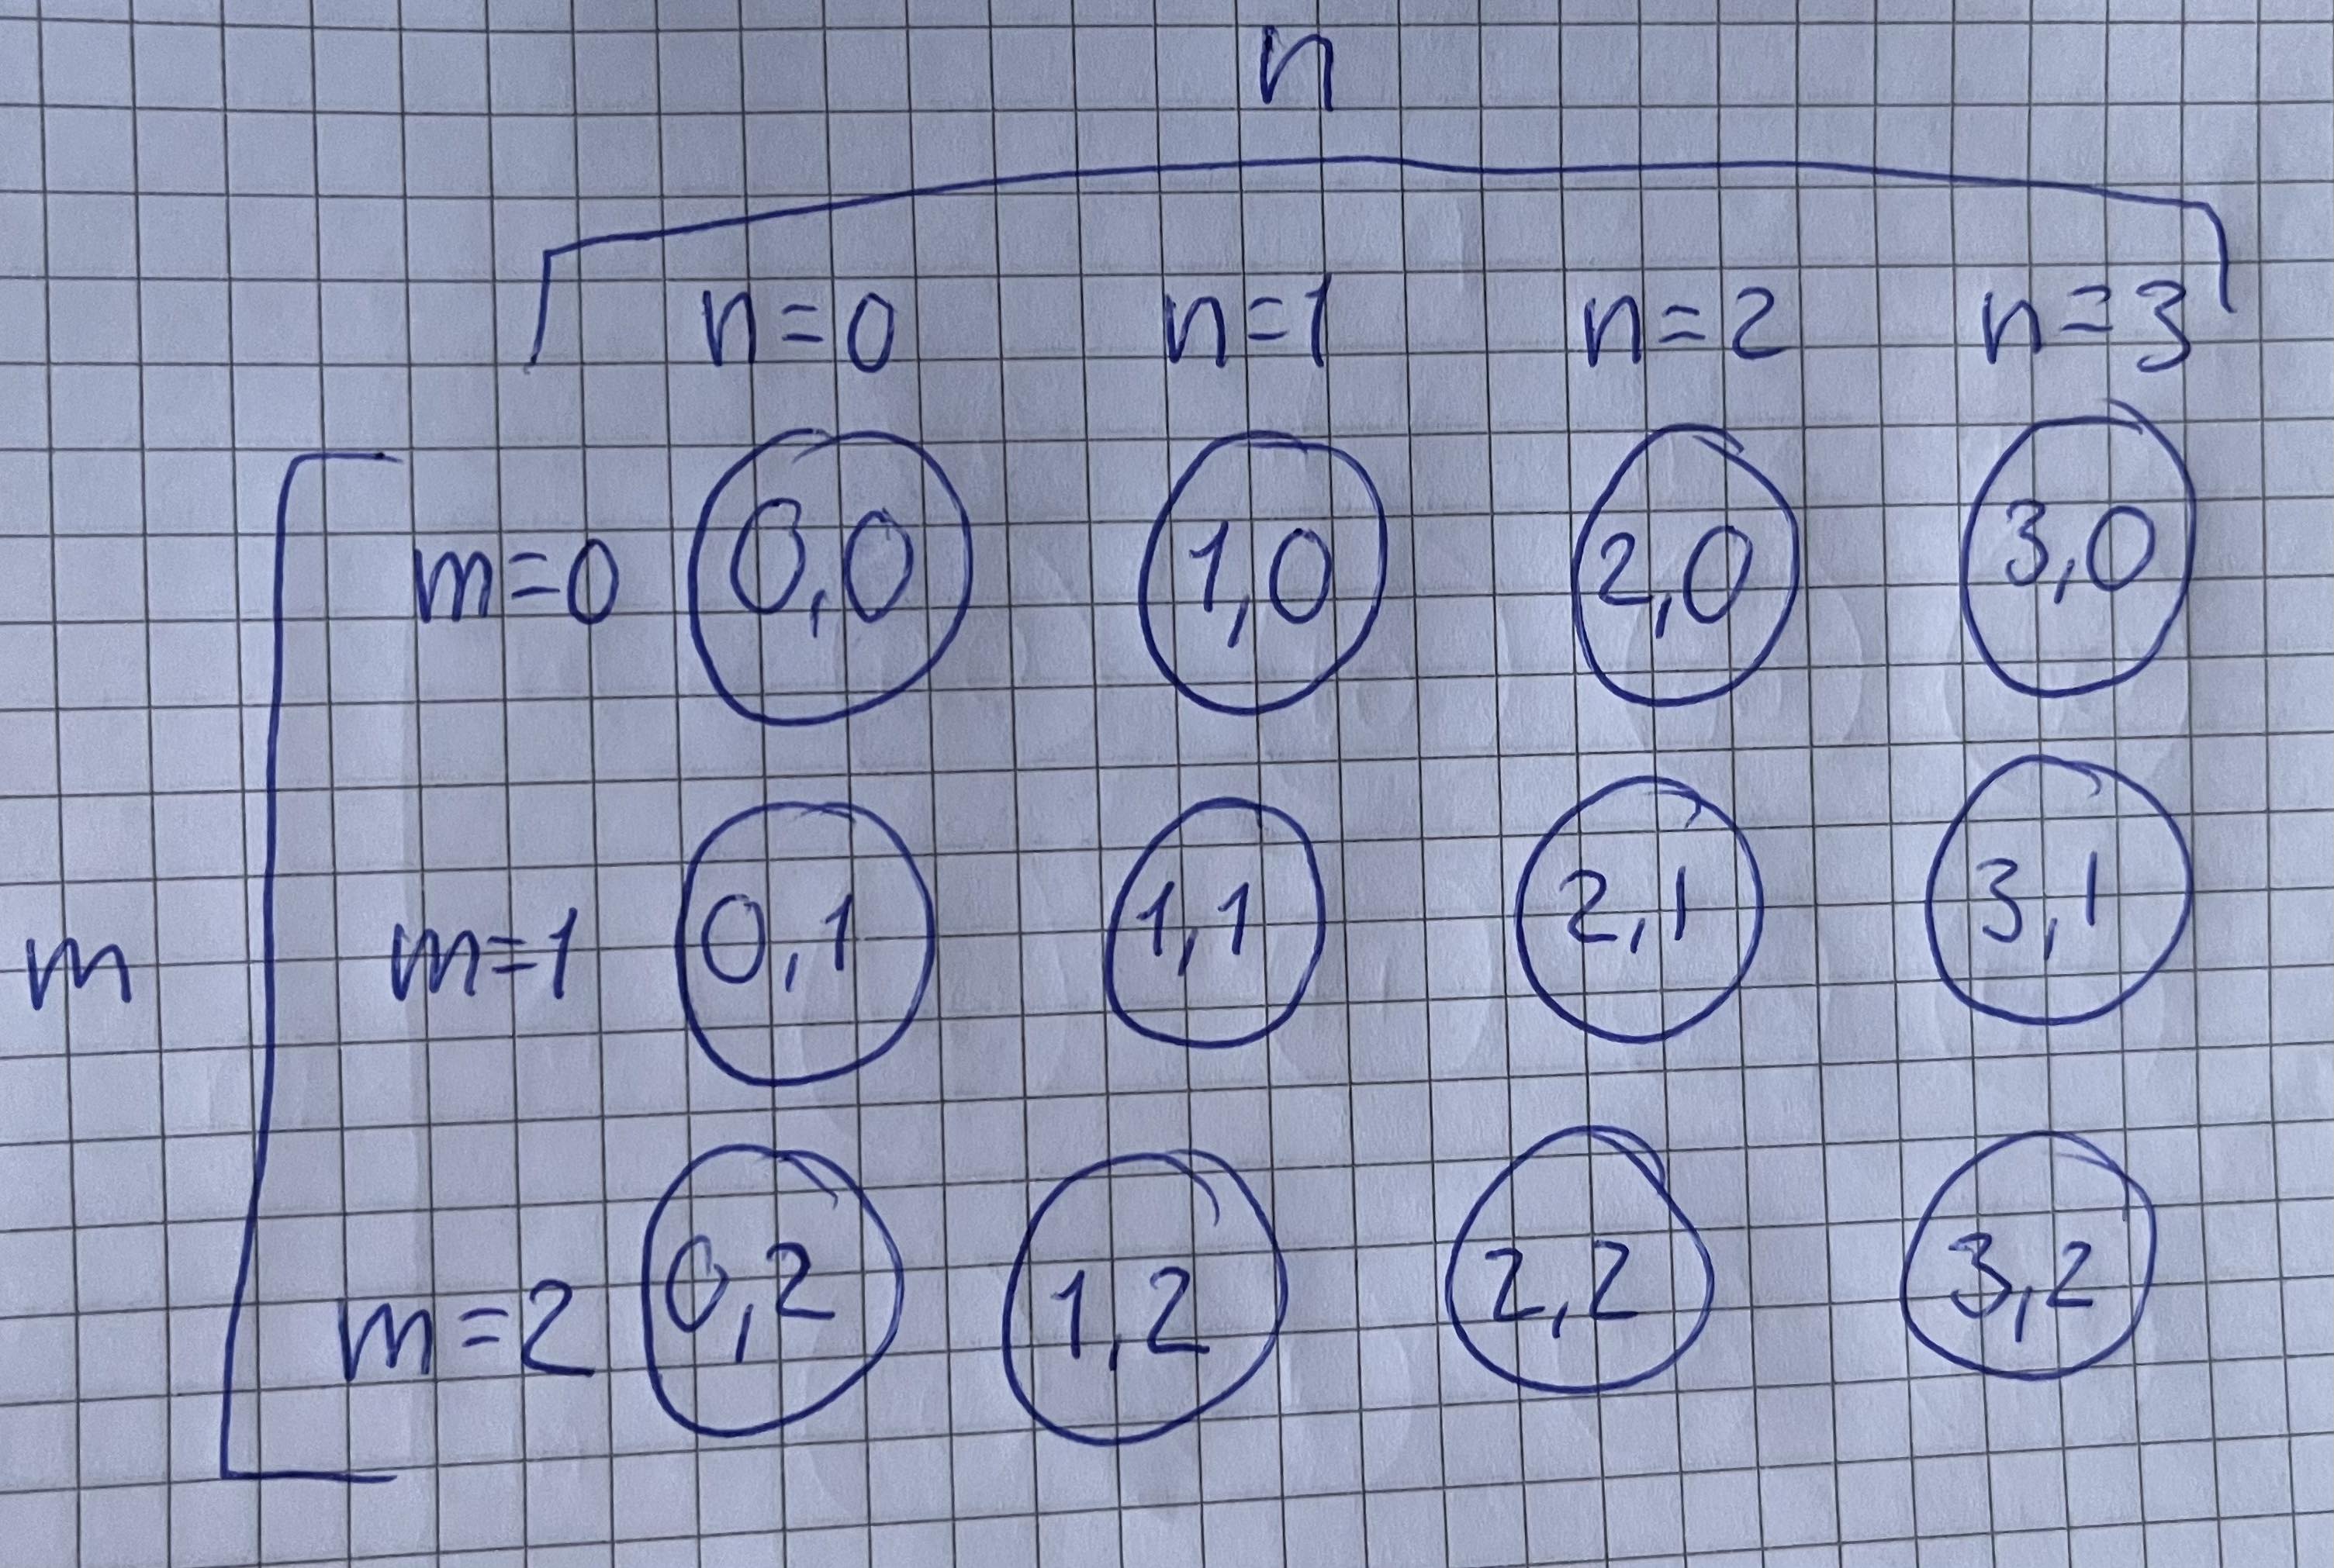 n
n=0 n=1 n=2 n=3
m=0 0,0 1,0 2,0 3,0
m
m=1 0,1 1,1 2,1 3,1
m=2 0,2 1,2 2,2 3,2